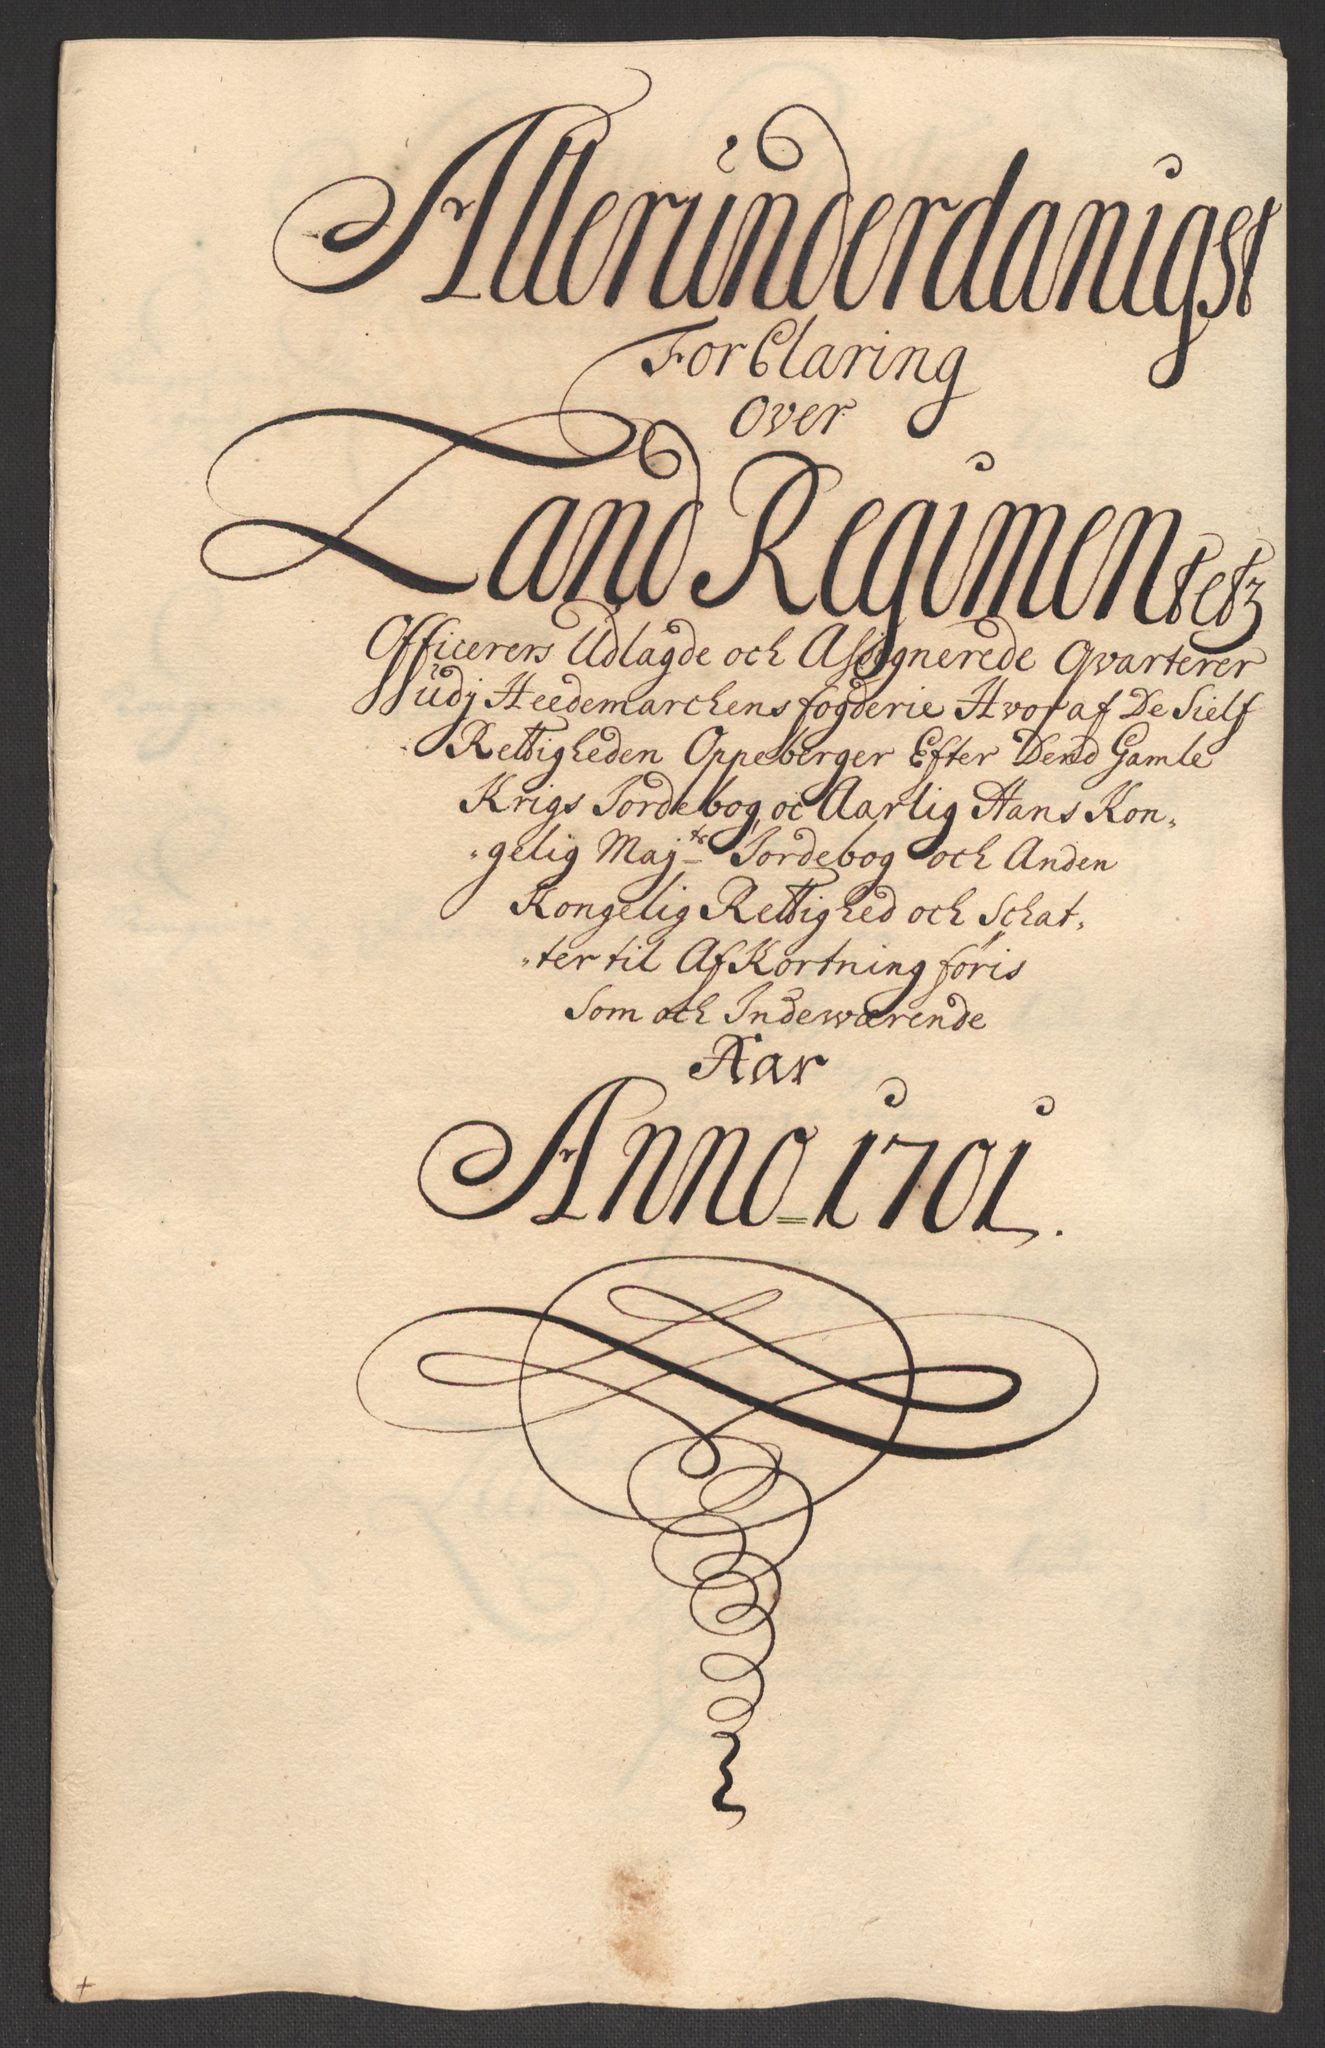 Alleründerdanigst
ForClaring
Over
Land Regimentetz
Officerers Udlagde och Assignerede Qvarterer
udj Heedemarchens fogderie Hvoraf De Sielf
Rettigheden Oppeberger Efter Dend Gamle
Krigs Jordebog, oc Aarlig Hans Kon„
„gelig Maj.ts Jordebog och Anden
Kongelig Rettighed och Schat„
„ter til AfKortning føris
Som och Indewærende
Aar
Anno=1701.